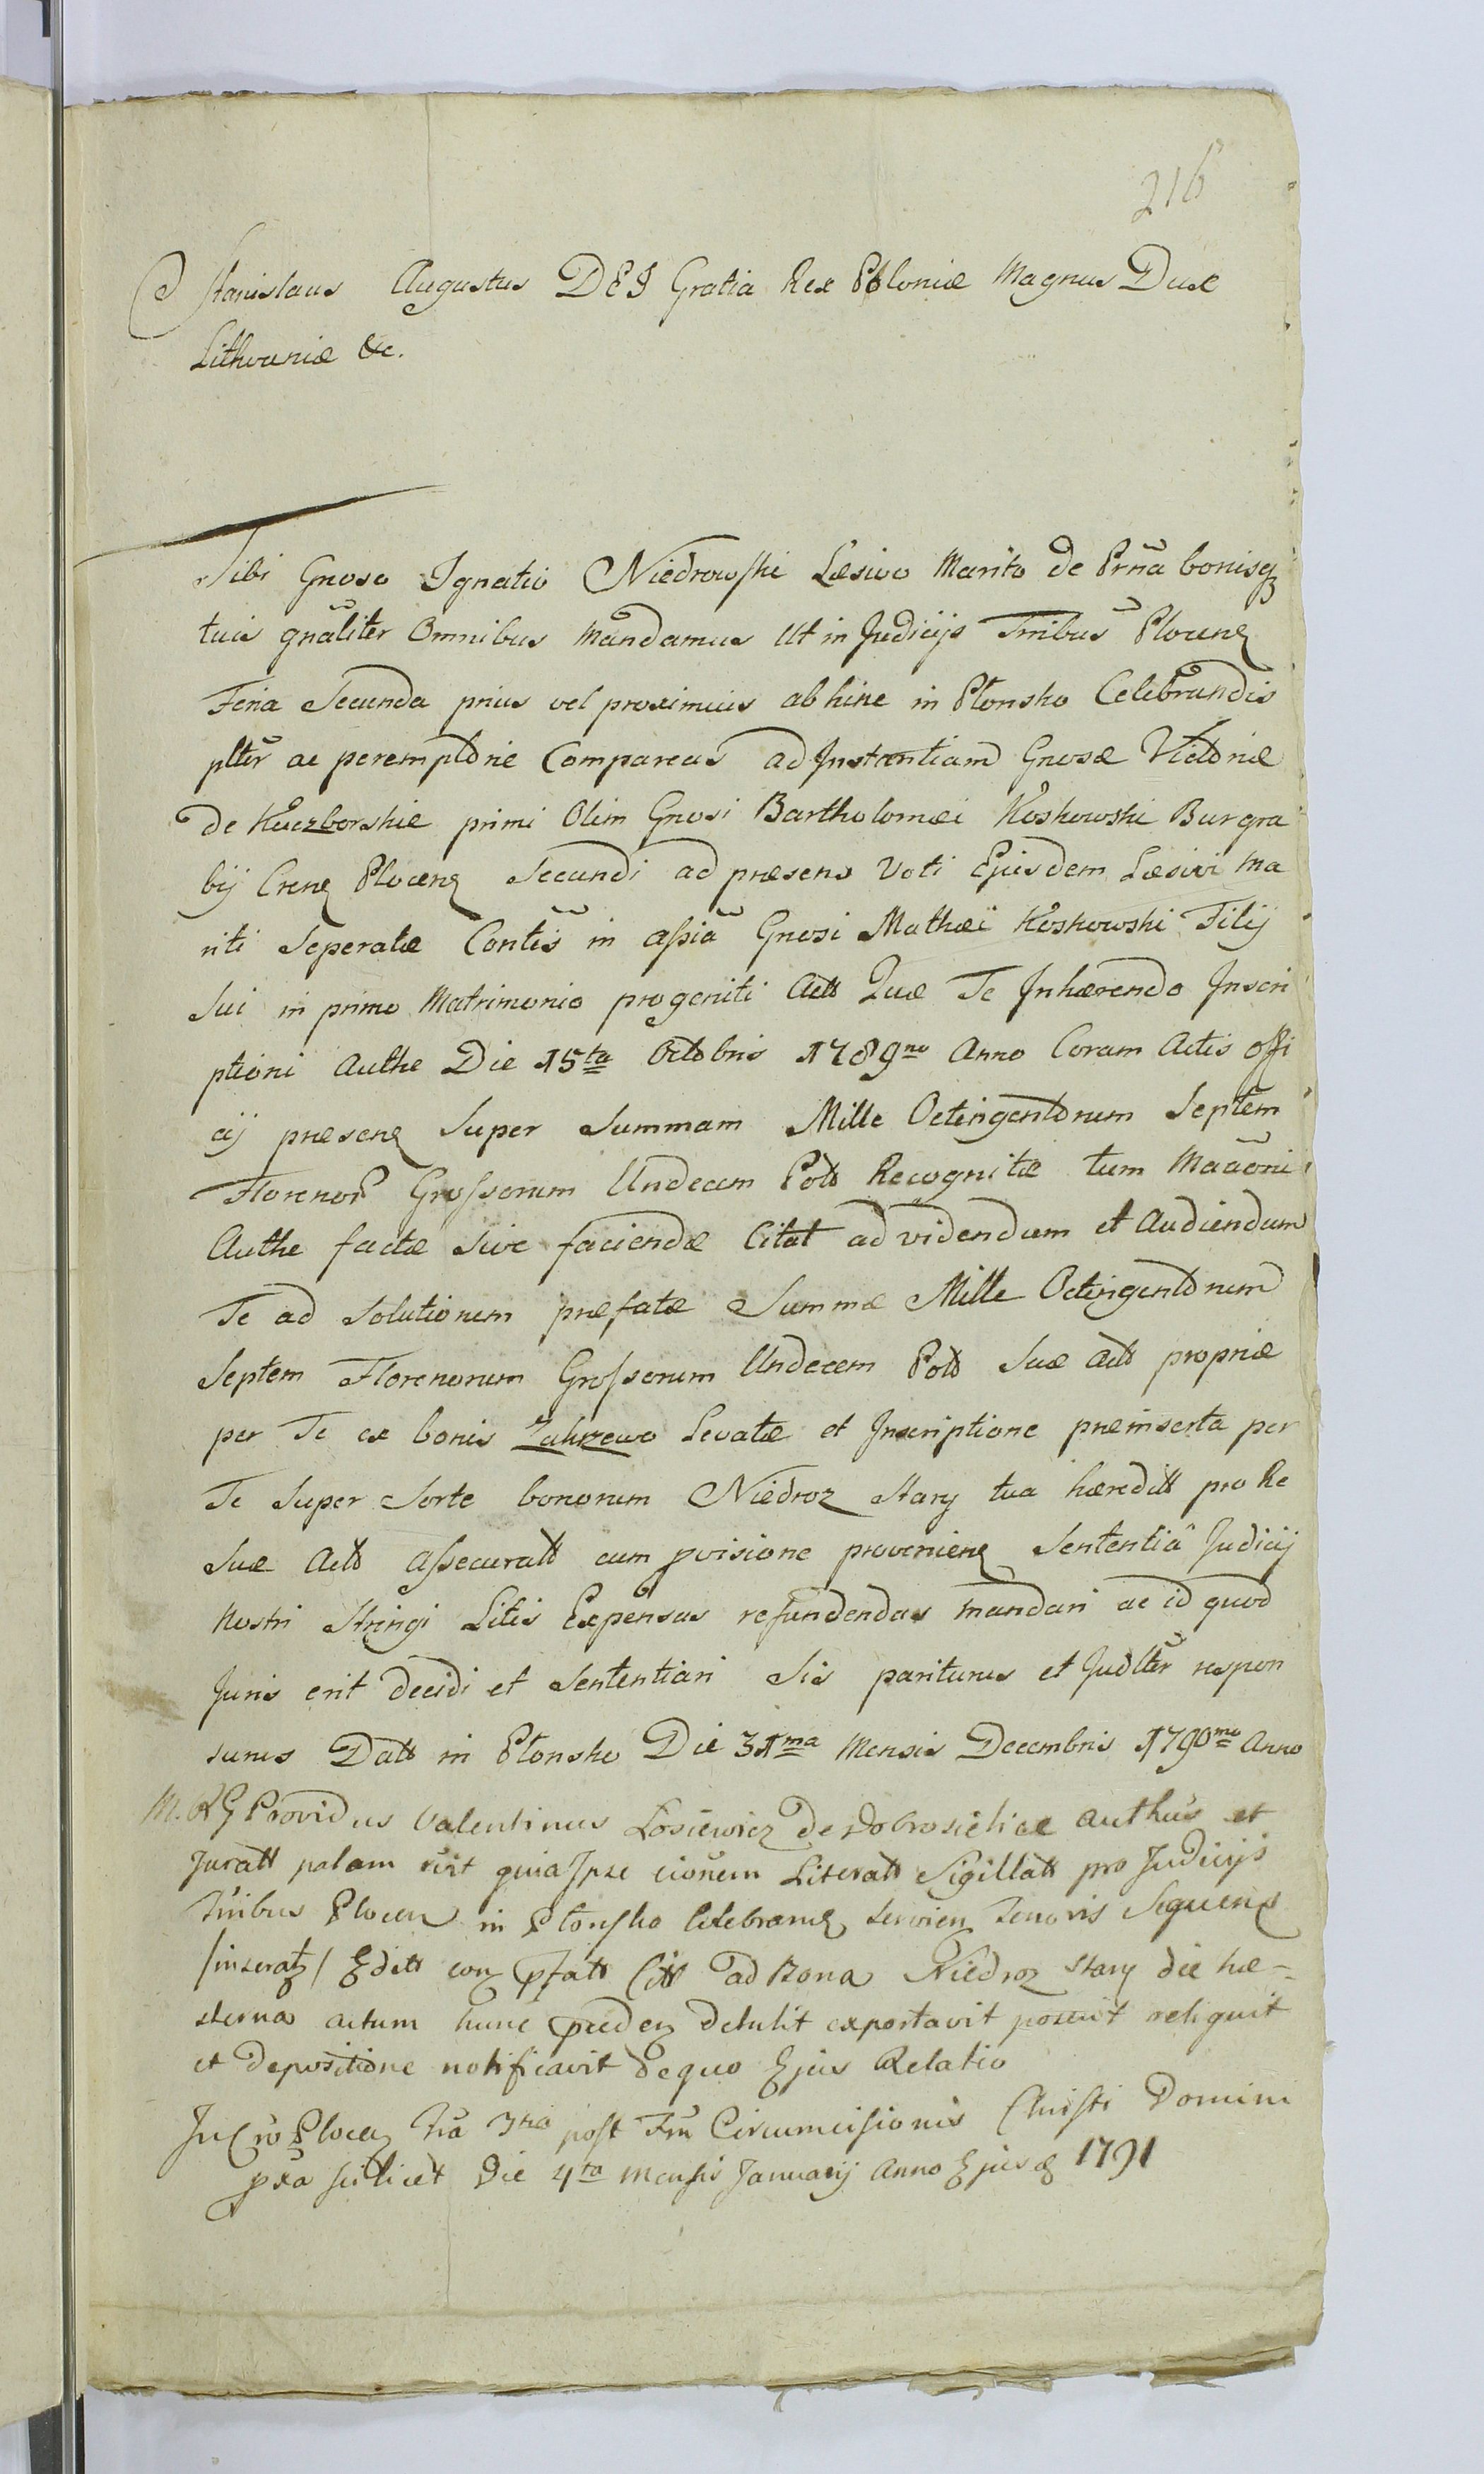 216
Stanislaus Augustus DEI Gratia Rex Poloniæ Magnus Dux
Lithvaniæ &c.
Tibi Gnoso Ignatio Niedrowski Læsivo Marito de Prña bonisq
tuis gnãliter Omnibus Mandamus Ut in Judicijs Trribus Plocens
Feria Secunda prius vel proximius abhinc in Płonsko Celebrandis
plter ac peremptorie Compareas ad Instantiam Gnosæ Victoriæ
de Kuczborskie primi Olim Gnosi Bartholomæi Koskowski Burgra
bij Crens Plocens Secundi ad præsens Voti Ejusdem Læsivi Ma
riti Seperatæ Contis in assia Gnosi Mathæi Koskowski Filij
Sui in primo Matrimonio progeniti Act Quæ Te Inhærendo Inscri
ptioni Authe Die 15ta Octobris 1789no Anno Coram Actis Offi
cij præsens Super Summam Mille Octingentorum Septem
Florenor Grossorum Undecem Pol Recognitæ tum Maãoni
Authe factæ Sive faciendæ Citat ad videndum et Audiendum
Te ad Solutionem præfatæ Summæ Mille Octingentorum
Septem Florenorum Grossorum Undecem Pol Suæ Act propriæ
per Te ex bonis Zakrzewo Levatæ et Inscriptione præinserta per
Te Super Sorte bonorum Niedroz Stary tua hæredit pro Re
Suæ Act Assecurat cum pvisione proveniens Sententiâ Judicij
Nostri Stringi Litis Expensas refundendas mandari ac id quod
Juris erit decidi et Sententiari Sis pariturus et Judlter respon
surus Dat in Płonsko Die 31ma Mensis Decembris 1790mo Anno
M. R G Providus Valentinus Łosiewicz de Dobrosielice authus et
Jurat palam rērt quia Ipse cionem Literat Sigillat pro Judicijs
Trribus Plocen in Płonsko Celebrans servien Tenoris Sequens
/inserat/ Edit con pfat Cit ad Bona Niedroz Stary die hæ-
sterna actum hunc præden detulit exportavit posuit reliquit
et depositione notificavit de quo Ejus Relatio
In Cro Plocen Fria 3tia post Fm Circumcisionis Christi Domini
pxa scilicet Die 4ta mensis Januarij Anno Ejusd 1791